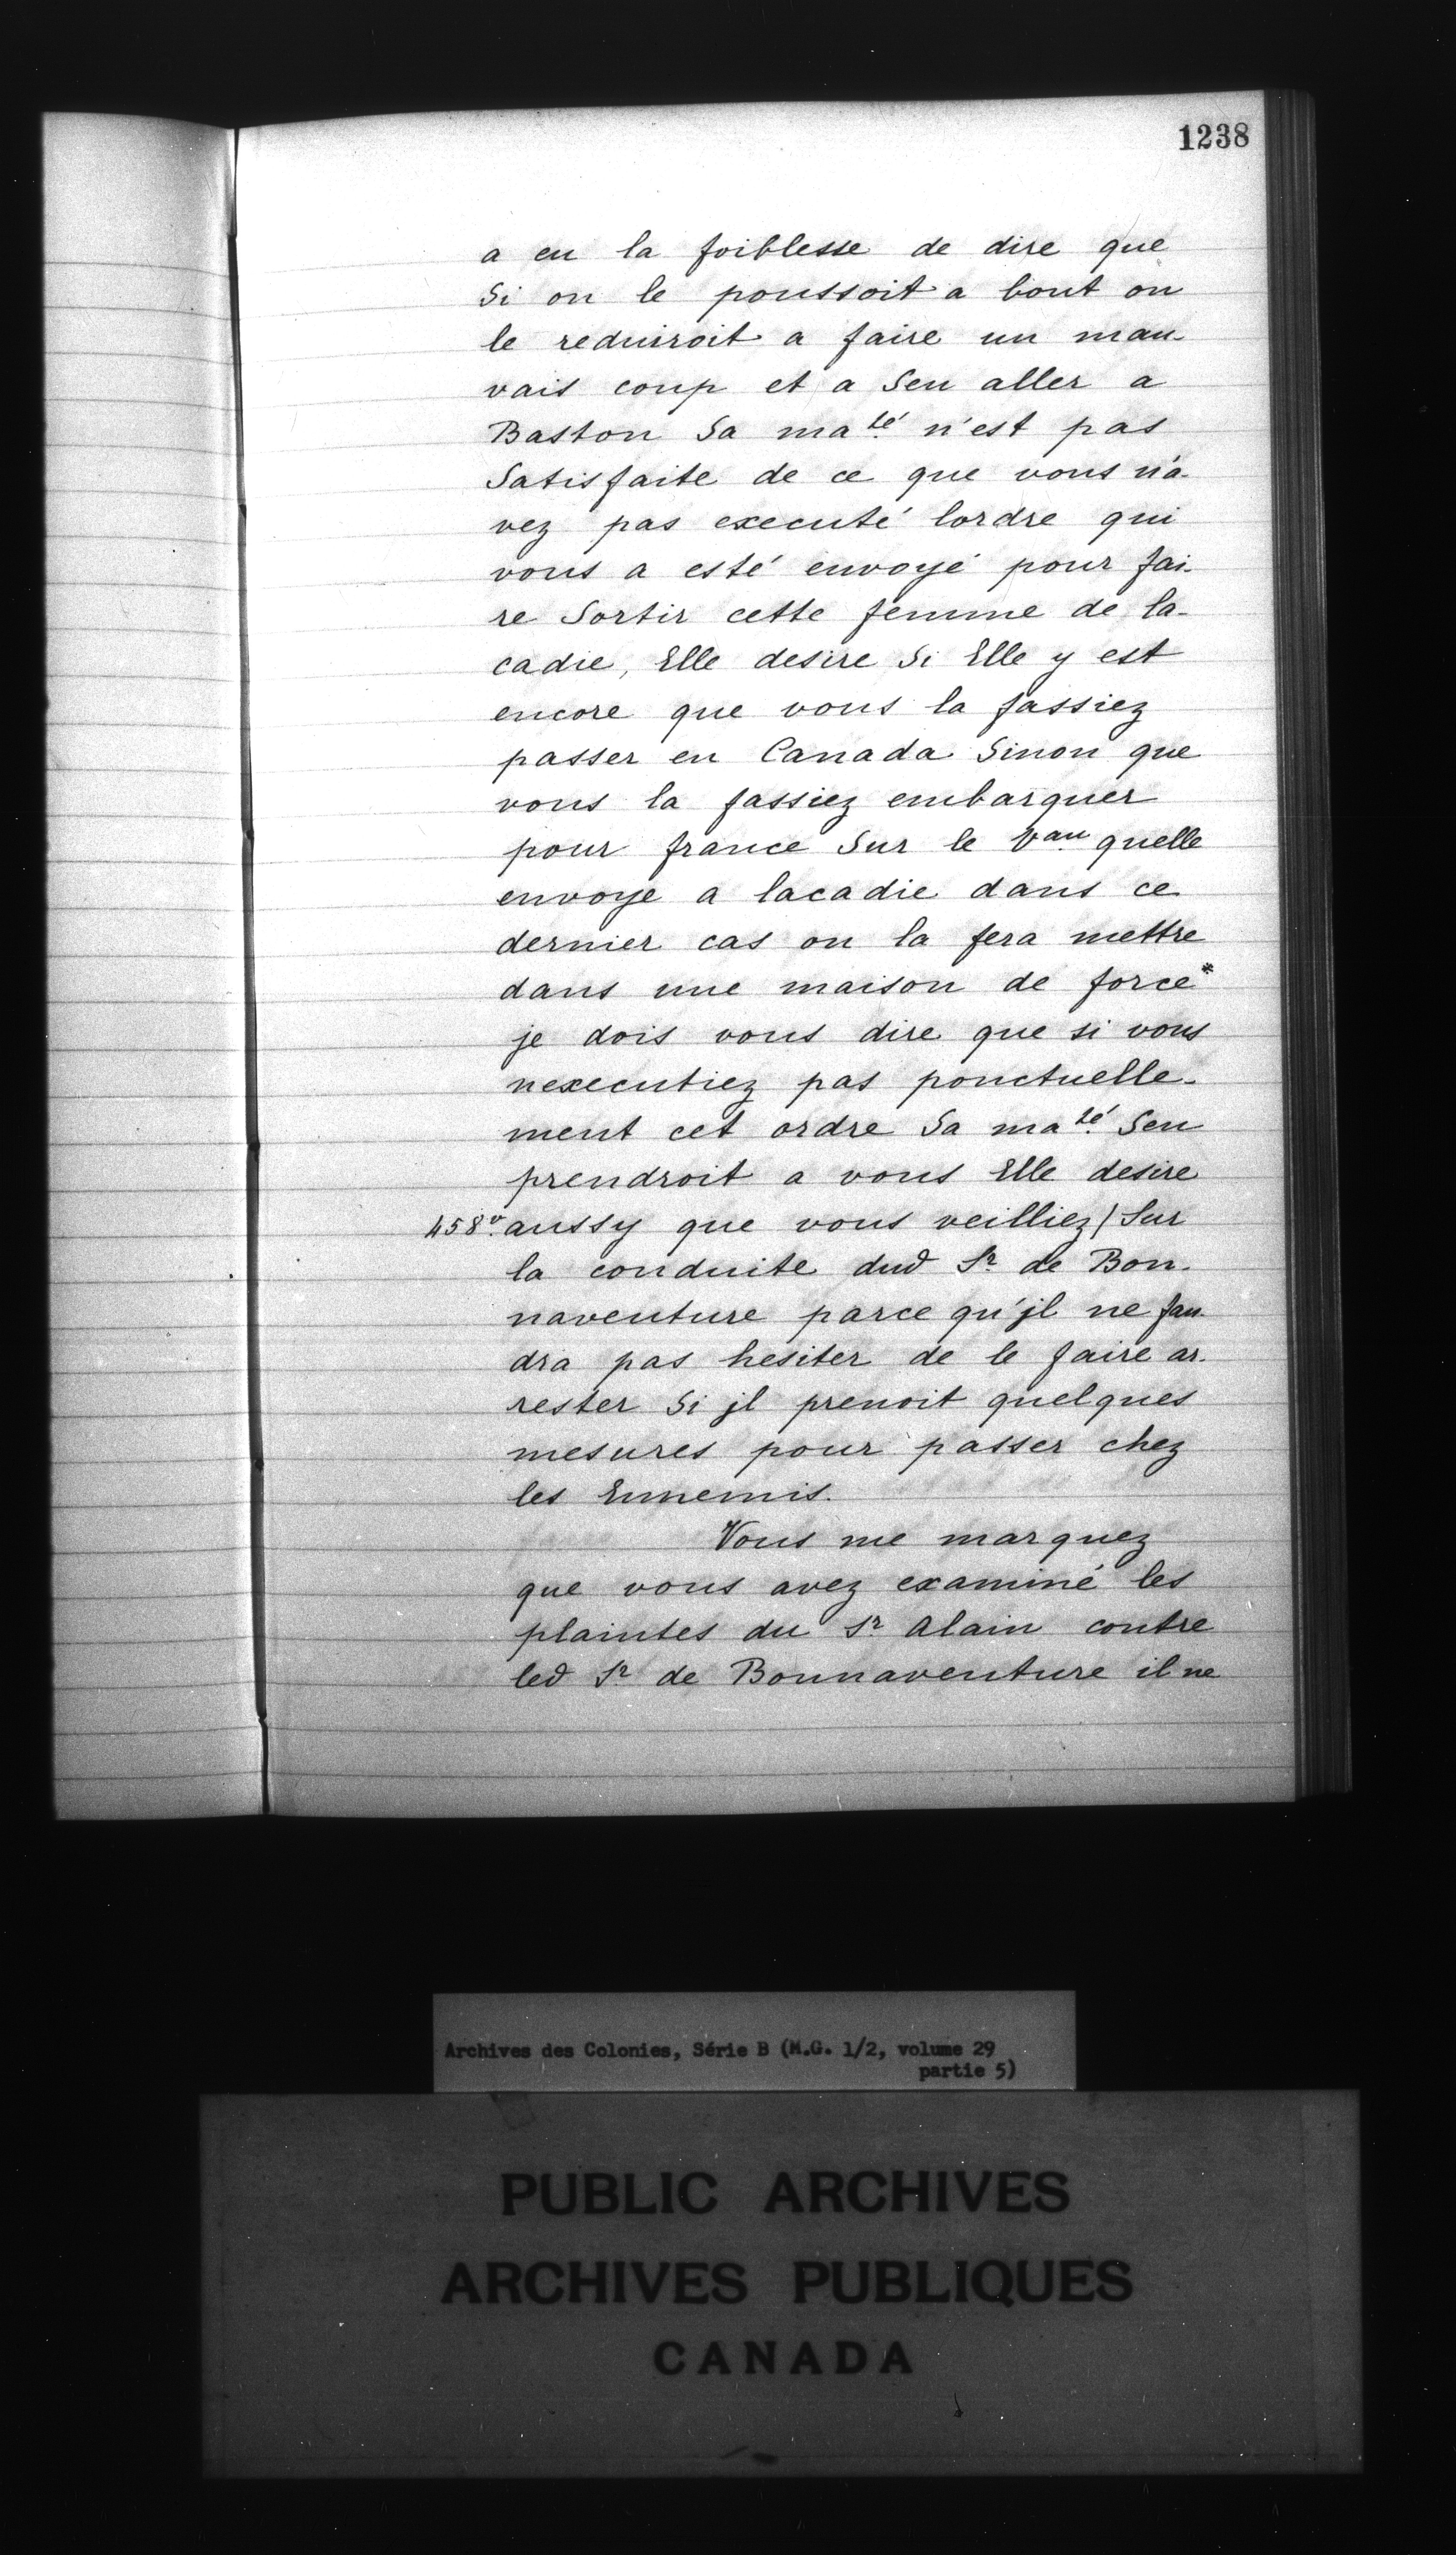 1238
a eu la foiblesse de dire que
Si on le poussoit a bout on
le reduiroit a faire un mau-
vais coup et a Sen aller a
Baston Sa ma.té n'est pas
Satisfaite de ce que vous n'a-
vez pas executé lordre qui
vous a esté envoyé pour fai-
re Sortir cette femme de la-
cadie, Elle desire Si Elle y est
encore que vous la fassiez
passer en Canada Sinon que
vous la fassiez embarquer
pour france Sur le V.au quelle
envoye a lacadie dans ce
dernier cas on la fera mettre
dans une maison de force*
je dois vous dire que si vous
nexecutiez pas ponctuelle-
ment cet ordre Sa ma.té Sen
prendroit a vous Elle desire
458v. aussy que vous veilliez / Sur
la conduite dud Sr de Bon-
naventure parce qu'jl ne fau-
dra pas hesiter de le faire ar-
rester Si jl prenoit quelques
mesures pour passer chez
les Ennemis.
Vous me marquez
que vous avez examiné les
plaintes du Sr Alain contre
led Sr de Bonnaventure il ne
Archives des Colonies, Série B (M.G. 1/2, volume 29
partie 5)
PUBLIC ARCHIVES
ARCHIVES PUBLIQUES
CANADA